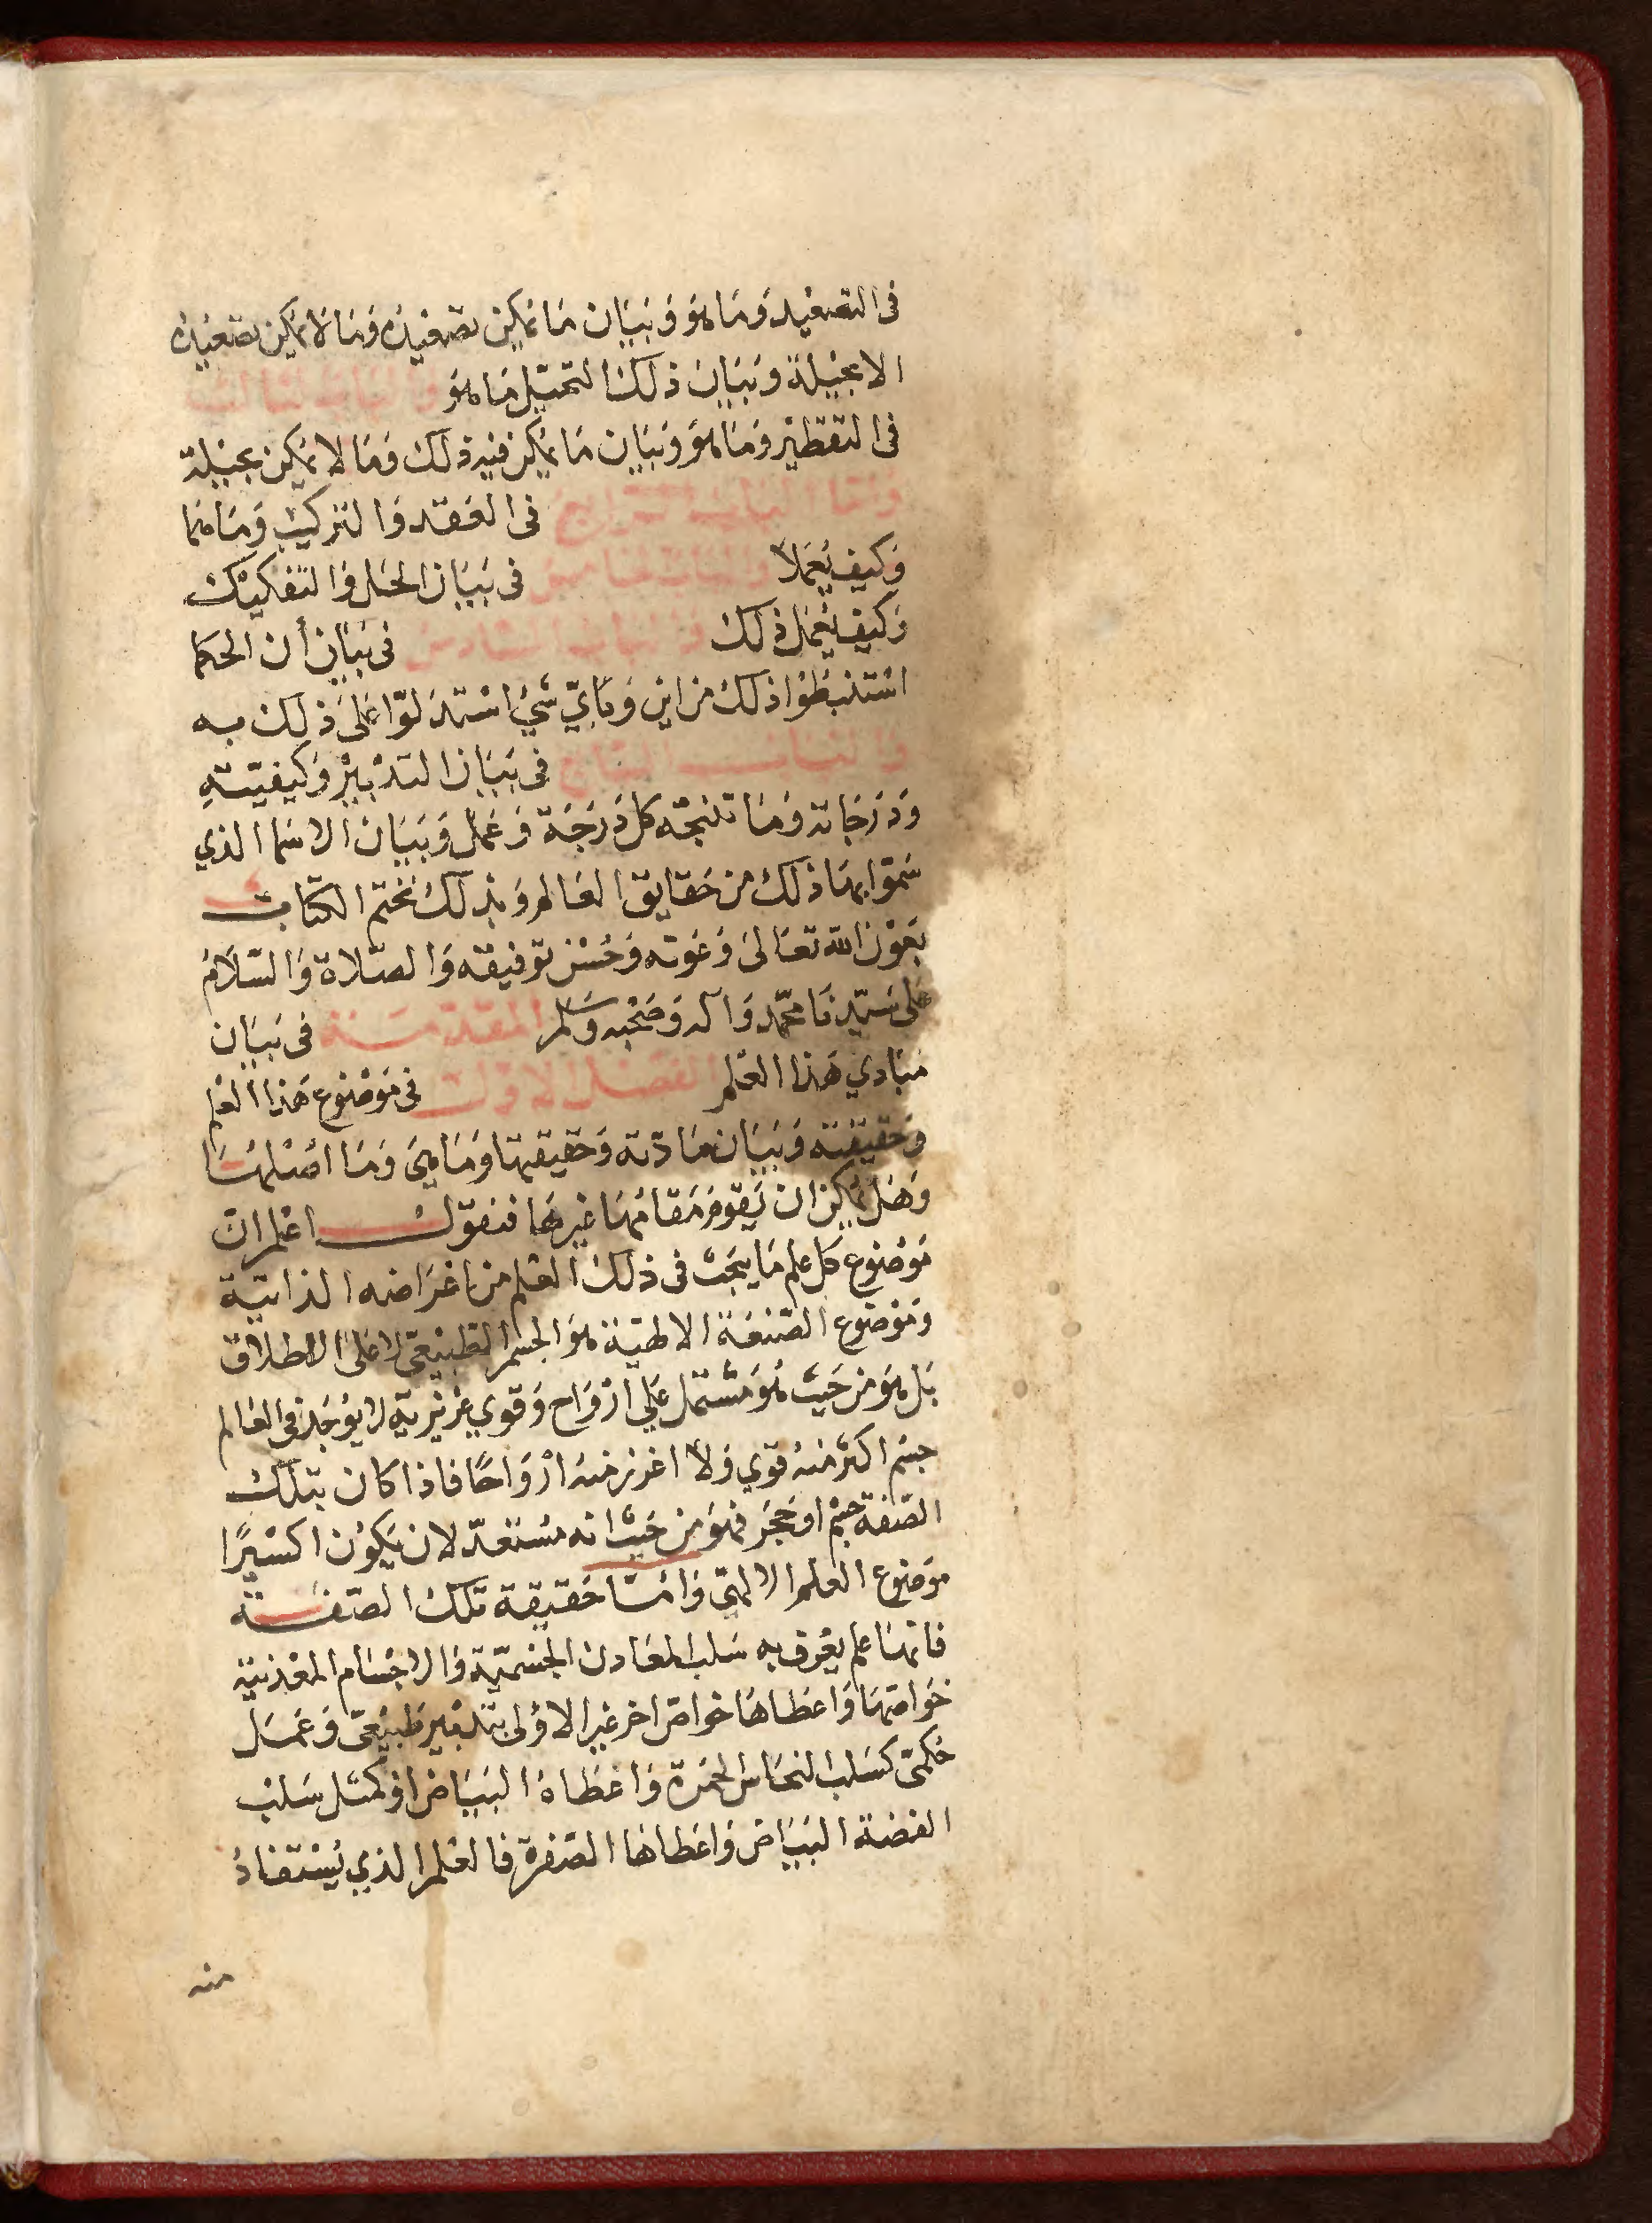 في التصعيد وما هو وبيان ما يمكن تصعيده وما لا يمكن تصعيده
الا بحيلة وبيان ذلك التحيل ما هو والباب الثالث
في التقطير وما هو وبيان ما يمكن فيه ذلك وما لا يمكن بحيلة
واما الباب الرابع في العقد والتركيب وما هما
وكيف يعملا والباب الخامس في بيان الحل والتفكيك
وكيف يعمل ذلك والباب السادس في بيان أن الحكما
استنبطوا ذلك من اين وباي شي استدلوا على ذلك به
والباب السابع في بيان التدبير وكيفيته
ودرجاته وما تنتجه كل درجة وعمل وبيان الاسما الذي
سموا بها ذلك من حقايق العالم وبذلك نختم الكتاب
بعون الله تعالى وغوثه وحسن توفيقه والصلاة والسلام
على سيدنا محمد وآله وصحبه وسلم المقدمة في بيان
مبادي هذا العلم الفصل الاول في موضوع هذا العلم
وحقيقته وبيان مادته وحقيقيتها وما هي وما اصلها
وهل يمكن ان يقوم مقامها غيرها فنقول اعلم ان
موضوع كل علم ما يبحث في ذلك العلم من اغراضه الذاتية
وموضوع الصنعة الالهية هو الجسم الطبيعي لا على الاطلاق
بل هو من حيث هو مشتمل على ارواح وقوي غزيرية لا يوجد في العالم
جسم اكثر منه قوي ولا اغزر منه ارواحًا فاذا كان بتلك
الصفة جسم او حجر فهو من حيث انه مستعد لان يكون اكسيرًا
موضوع العلم الالهي واما حقيقة تلك الصنعة
فانها علم يعرف به سلب المعادن الجسمية والاجسام المعدنية
خواصها واعطاها خواص اخر غير الاولى بتدبير طبيعي وعمل
حكمي كسلب النحاس الحمرة واعطاه البياض او كمثل سلب
الفضة البياض واعطاها الصفرة فالعلم الذي يستفاد
منه